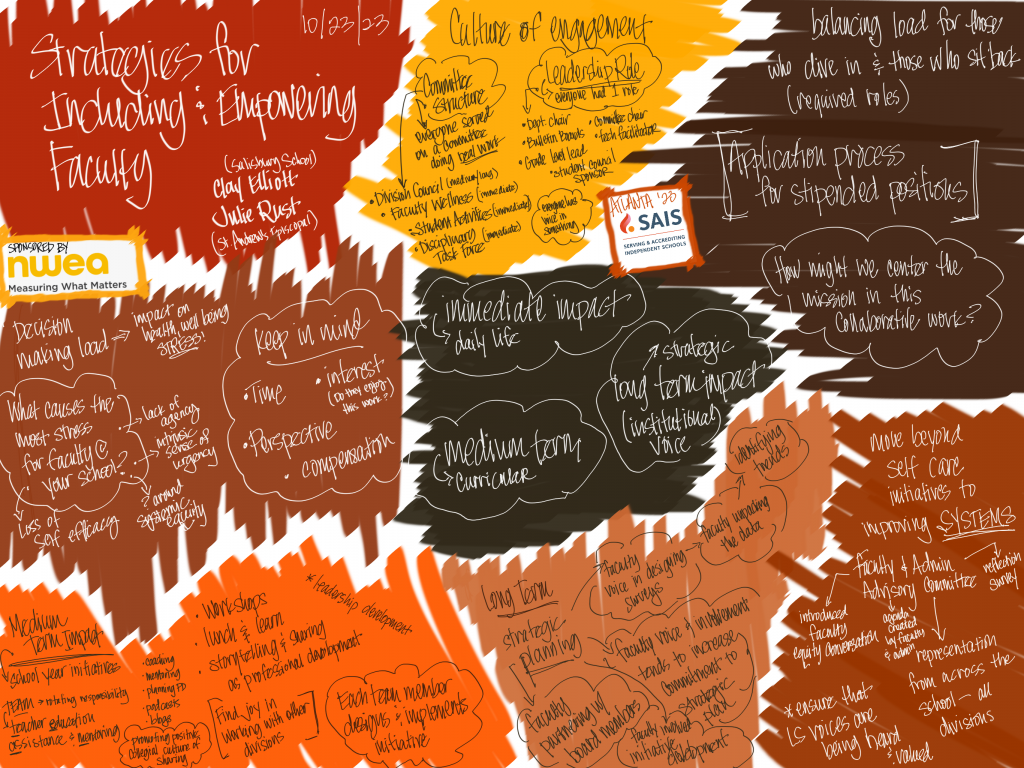 10/23/23
Strategies for
Including & Empowering
Faculty
(Salisbury School)
Clay Elliott
Julie Rust
(St Andrew's Episcopal)
SPONSORED BY
nwea
Measuring What Matters
Culture of engagement
Committee
Structure
everyone served
on a committee
doing real work
Leadership Role
everyone had 1 role
• Dept. chair
• Committee chair
• Bulletin Boards
• tech facilitator
• Grade level lead
• student council
sponsor
• Division Council (medium/long)
• Faculty Wellness (immediate)
• Student Activities (immediate)
• Disciplinary (immediate)
Task Force
everyone has
voice in
something
ATLANTA '23
SAIS
SERVING & ACCREDITING
INDEPENDENT SCHOOLS
balancing load for those
who dive in & those who sit back
(required roles)
[Application process
for stipended positions]
How might we center the
mission in this
collaborative work?
Decision
making load ⇒
impact on
health, well being
STRESS!
What causes the
most stress
for faculty @
your school?
→ lack of
agency
→ intrinsic
sense of
urgency
→ ? around
systemic
equity
Loss of
self efficacy
Keep in mind
• Time
• interest
(Do they enjoy
this work?)
• Perspective
• compensation
immediate impact
↳ daily life
medium term
↳ curricular
↗ strategic
long term impact
(institutional)
voice
Medium
Term Impact
school year initiatives
TEAM → rotating responsibility
teacher education
assistance & mentoring
• coaching
• mentoring
• planning PD
• podcasts
• blogs
promoting positive,
collegial culture of
sharing
• Workshops
• lunch & learn
• storytelling & sharing
as professional development
* leadership development
[Find joy in
working with other
divisions]
Each team member
designs & implements
initiative
Long Term
strategic
planning
Faculty
voice in designing
surveys
faculty unpacking
the data
identifying
trends
Faculty voice & involvement
tends to increase
commitment to
strategic
plan
Faculty
w/
board members
faculty involved
initiative
development
move beyond
self care
initiatives to
improving SYSTEMS
→ reflection
survey
Faculty & Admin
Advisory Committee
introduced
faculty
equity conversation
agenda
created
by faculty
& admin
representation
from across the
school - all
divisions
* ensure that
LS voices are
being heard
& valued